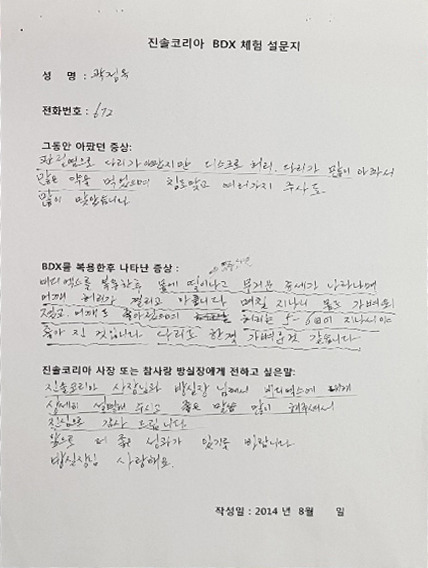 진솔코리아 BDX 체험 설문지
성 명 : 곽정옥
전화번호 : 672
그동안 아팠던 증상:
다리가 아만지만 디스크로 허리. 다리가 많이 아파서
많은 약을 먹었으며 침도맞고 여러가지 주사도
많이 맞았습니다
BDX를 복용한후 나타난 증상 :
비디엑스를 복용한후 몸에 열이나고 무거운 증세가 나타나며
어깨 허리가 결리고 아픕니다 며칠 지나니 몸도 가벼워
지고 어깨도 좋아졌으며 5-6일이 지나니
좋아 진 것입니다 다리도 한결 가벼운것 같습니다
진솔코리아 사장 또는 참사랑 방실장에게 전하고 싶은말:
진솔코리아 사장님과 방실장 님께서 비디엑스에
상세히 설명해 주시고 좋은 말씀 많이 해주셔서
진심으로 감사 드립니다
앞으로 더 좋은 성과가 있기를 바랍니다
방실장님 사랑해요.
작성일 : 2014 년 8월 일